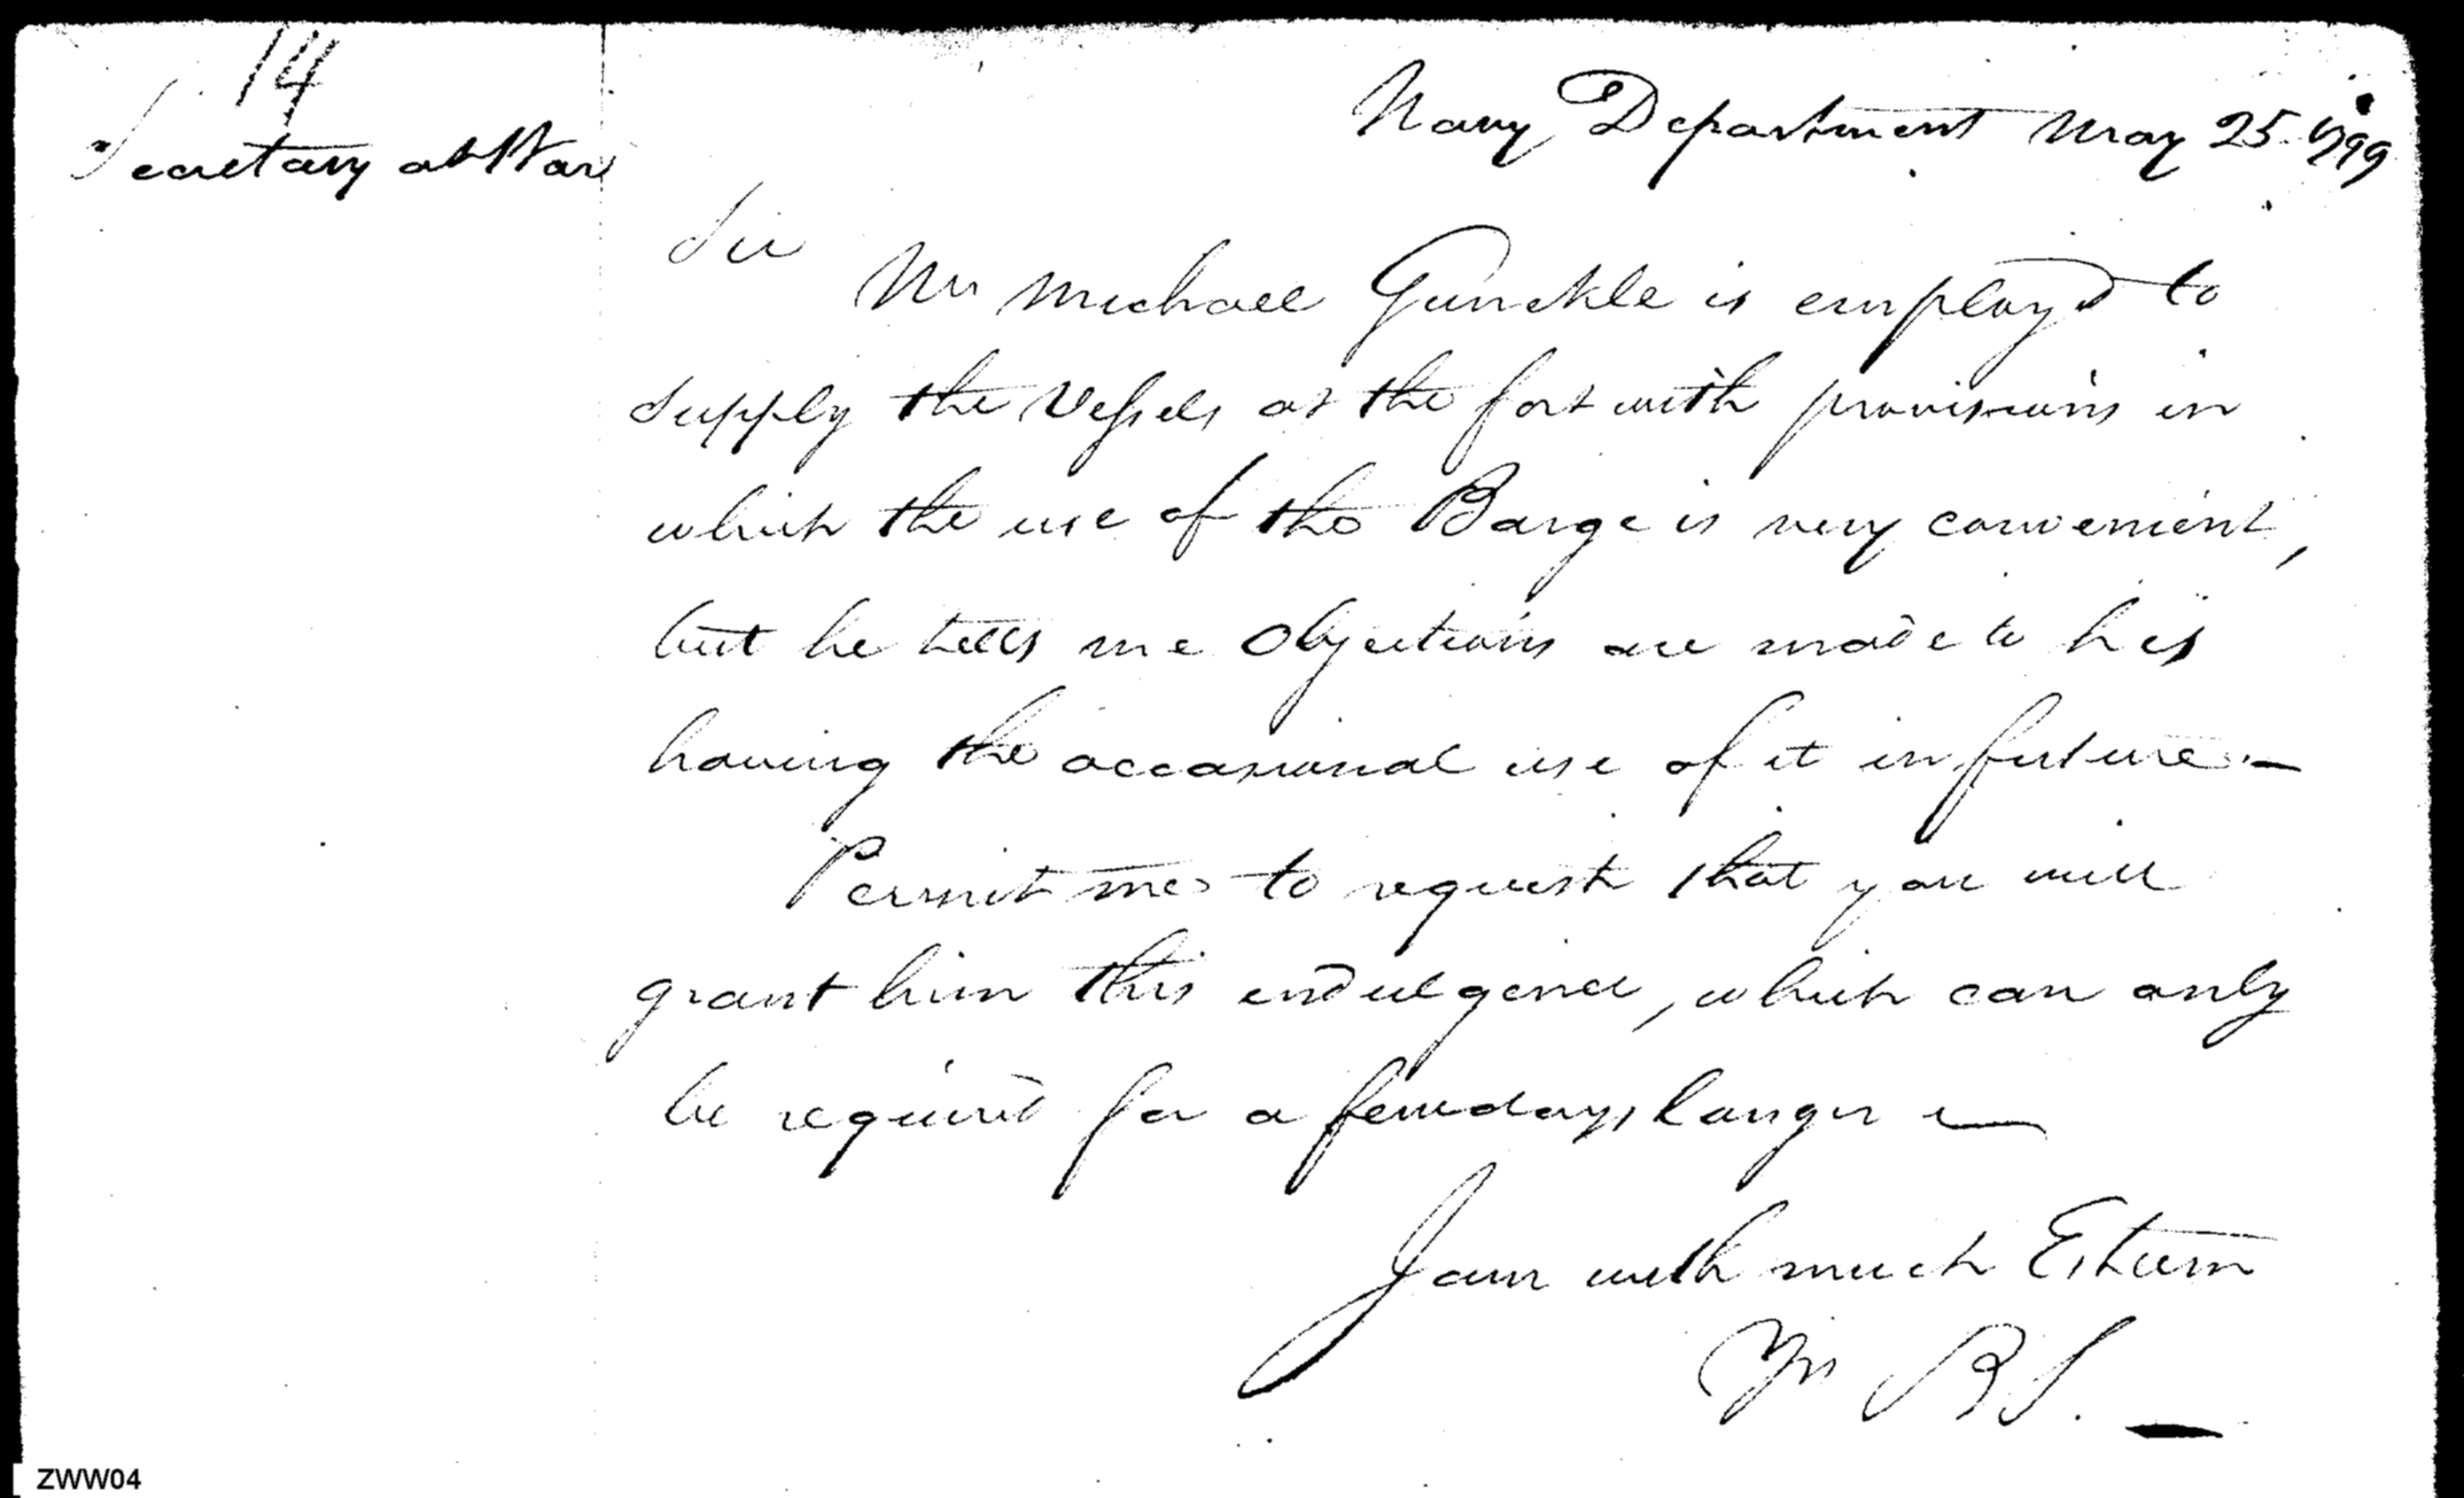 14
Secretary at War
Navy Department May 25. 1799
Sir
Mr Michael Gunckle is employd to
supply the Vessels at the fort with provisions in
which the use of the Barge is very convenient,
but he tells me Objections are made to his
having the occasional use of it in future.—
Permit me to request that you will
grant him this indulgence, which can only
be required for a few days longer —
I am with much Esteem
Yrs B S. —
ZWW04